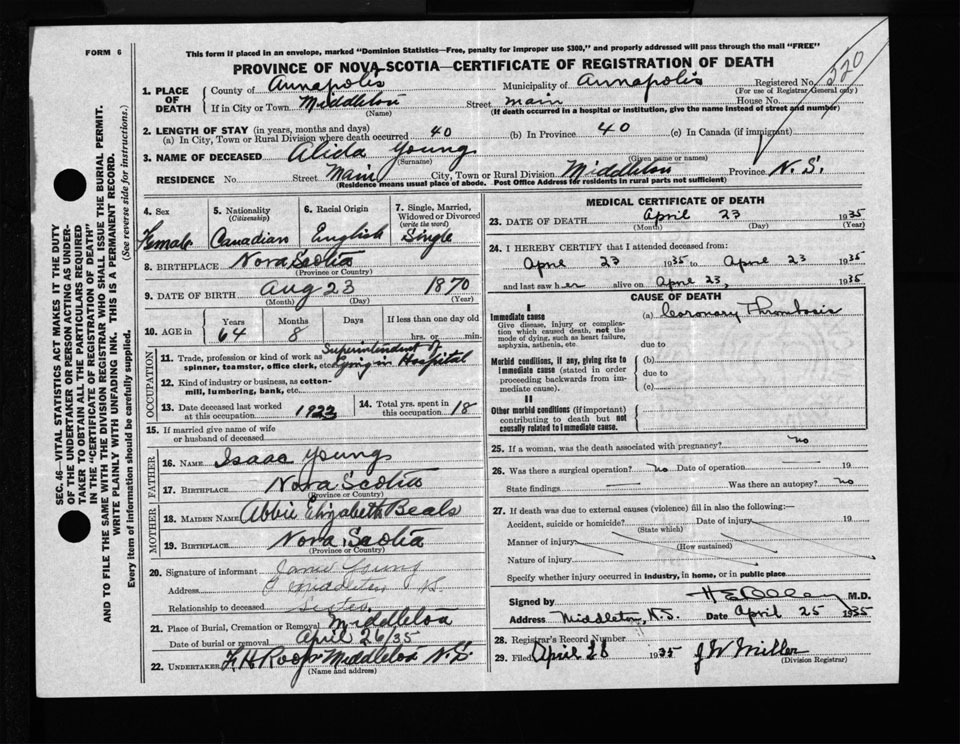 FORM 6
This form if placed in an envelope, marked "Dominion Statistics—Free, penalty for improper use $300," and properly addressed will pass through the mail "FREE"
PROVINCE OF NOVA SCOTIA—CERTIFICATE OF REGISTRATION OF DEATH
220
1. PLACE OF DEATH
County of Annapolis Municipality of Annapolis Registered No.
(For use of Registrar General only)
If in City or Town Middleton Street Main House No.
(Name) (If death occurred in a hospital or institution, give the name instead of street and number)
2. LENGTH OF STAY (in years, months and days)
(a) In City, Town or Rural Division where death occurred 40 (b) In Province 40 (c) In Canada (if immigrant)
3. NAME OF DECEASED Alida Young
(Surname) (Given name or names)
RESIDENCE No. Street Main City, Town or Rural Division Middleton Province N. S.
(Residence means usual place of abode. Post Office Address for residents in rural parts not sufficient)
4. Sex Female
5. Nationality (Citizenship) Canadian
6. Racial Origin English
7. Single, Married, Widowed or Divorced (write the word) Single
8. BIRTHPLACE Nova Scotia
(Province or Country)
9. DATE OF BIRTH Aug 23 1870
(Month) (Day) (Year)
10. AGE in Years Months Days If less than one day old
64 8 hrs. or min.
OCCUPATION
11. Trade, profession or kind of work as spinner, teamster, office clerk, etc. Superintendent of Lying in Hospital
12. Kind of industry or business, as cotton-mill, lumbering, bank, etc.
13. Date deceased last worked at this occupation 1933
14. Total yrs. spent in this occupation 18
15. If married give name of wife or husband of deceased
FATHER
16. NAME Isaac Young
17. BIRTHPLACE Nova Scotia
(Province or Country)
MOTHER
18. MAIDEN NAME Abbie Elizabeth Beals
19. BIRTHPLACE Nova Scotia
(Province or Country)
20. Signature of informant Young
Address Middleton
Relationship to deceased Sister
21. Place of Burial, Cremation or Removal Middleton
Date of burial or removal April 26/35
22. UNDERTAKER F. H. Roop Middleton N.S.
(Name and address)
MEDICAL CERTIFICATE OF DEATH
23. DATE OF DEATH April 23 1935
(Month) (Day) (Year)
24. I HEREBY CERTIFY that I attended deceased from:
April 23 1935 to April 23 1935
and last saw her alive on April 23, 1935
CAUSE OF DEATH
I
Immediate cause (a) Coronary Thrombosis
Give disease, injury or complication which caused death, not the mode of dying, such as heart failure, asphyxia, asthenia, etc.
due to
Morbid conditions, if any, giving rise to immediate cause (stated in order proceeding backwards from immediate cause).
(b)
due to
(c)
II
Other morbid conditions (if important) contributing to death but not causally related to immediate cause.
25. If a woman, was the death associated with pregnancy? no
26. Was there a surgical operation? no Date of operation 19
State findings Was there an autopsy? no
27. If death was due to external causes (violence) fill in also the following:—
Accident, suicide or homicide? Date of injury 19
(State which)
Manner of injury
(How sustained)
Nature of injury
Specify whether injury occurred in industry, in home, or in public place
Signed by M.D.
Address Middleton, N.S. Date April 25 1935
28. Registrar's Record Number
29. Filed April 28 1935 J W Miller
(Division Registrar)
SEC. 46—VITAL STATISTICS ACT MAKES IT THE DUTY
OF THE UNDERTAKER OR PERSON ACTING AS UNDER-
TAKER TO OBTAIN ALL THE PARTICULARS REQUIRED
IN THE "CERTIFICATE OF REGISTRATION OF DEATH"
AND TO FILE THE SAME WITH THE DIVISION REGISTRAR WHO SHALL ISSUE THE BURIAL PERMIT.
WRITE PLAINLY WITH UNFADING INK. THIS IS A PERMANENT RECORD.
Every item of information should be carefully supplied. (See reverse side for instructions.)